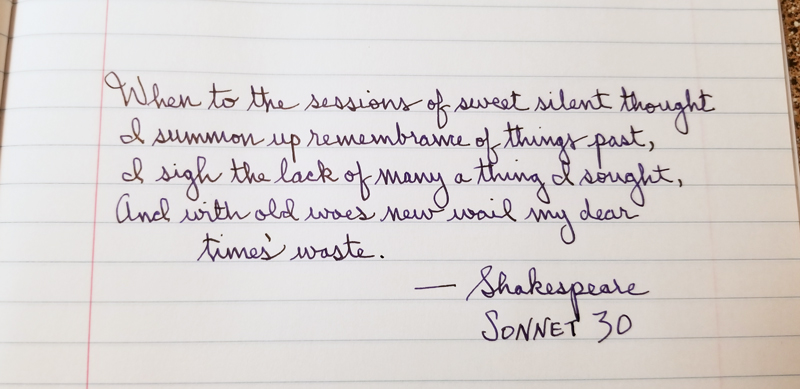 When to the sessions of sweet silent thought
I summon up remembrance of things past,
I sigh the lack of many a thing I sought,
And with old woes new wail my dear
times' waste.
— Shakespeare
SONNET 30